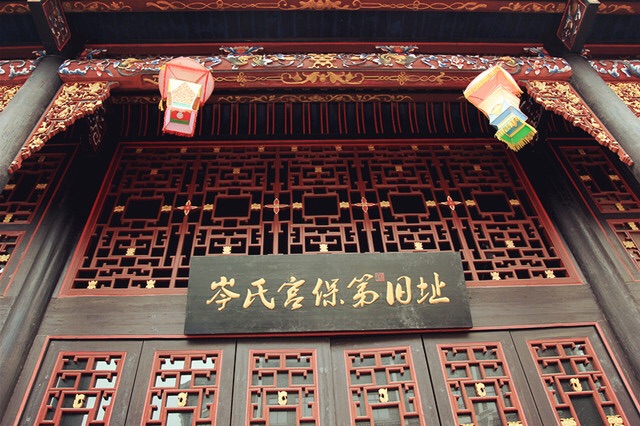 岑氏宫保第旧址